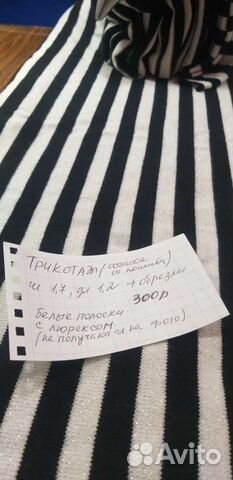 ТРИКОТАЖ (остаток
от пошива)
ш. 1,7, дл 1,2 + обрезки
300р
белые полоски
с люрексом
(не получают ся на фото)
Avito